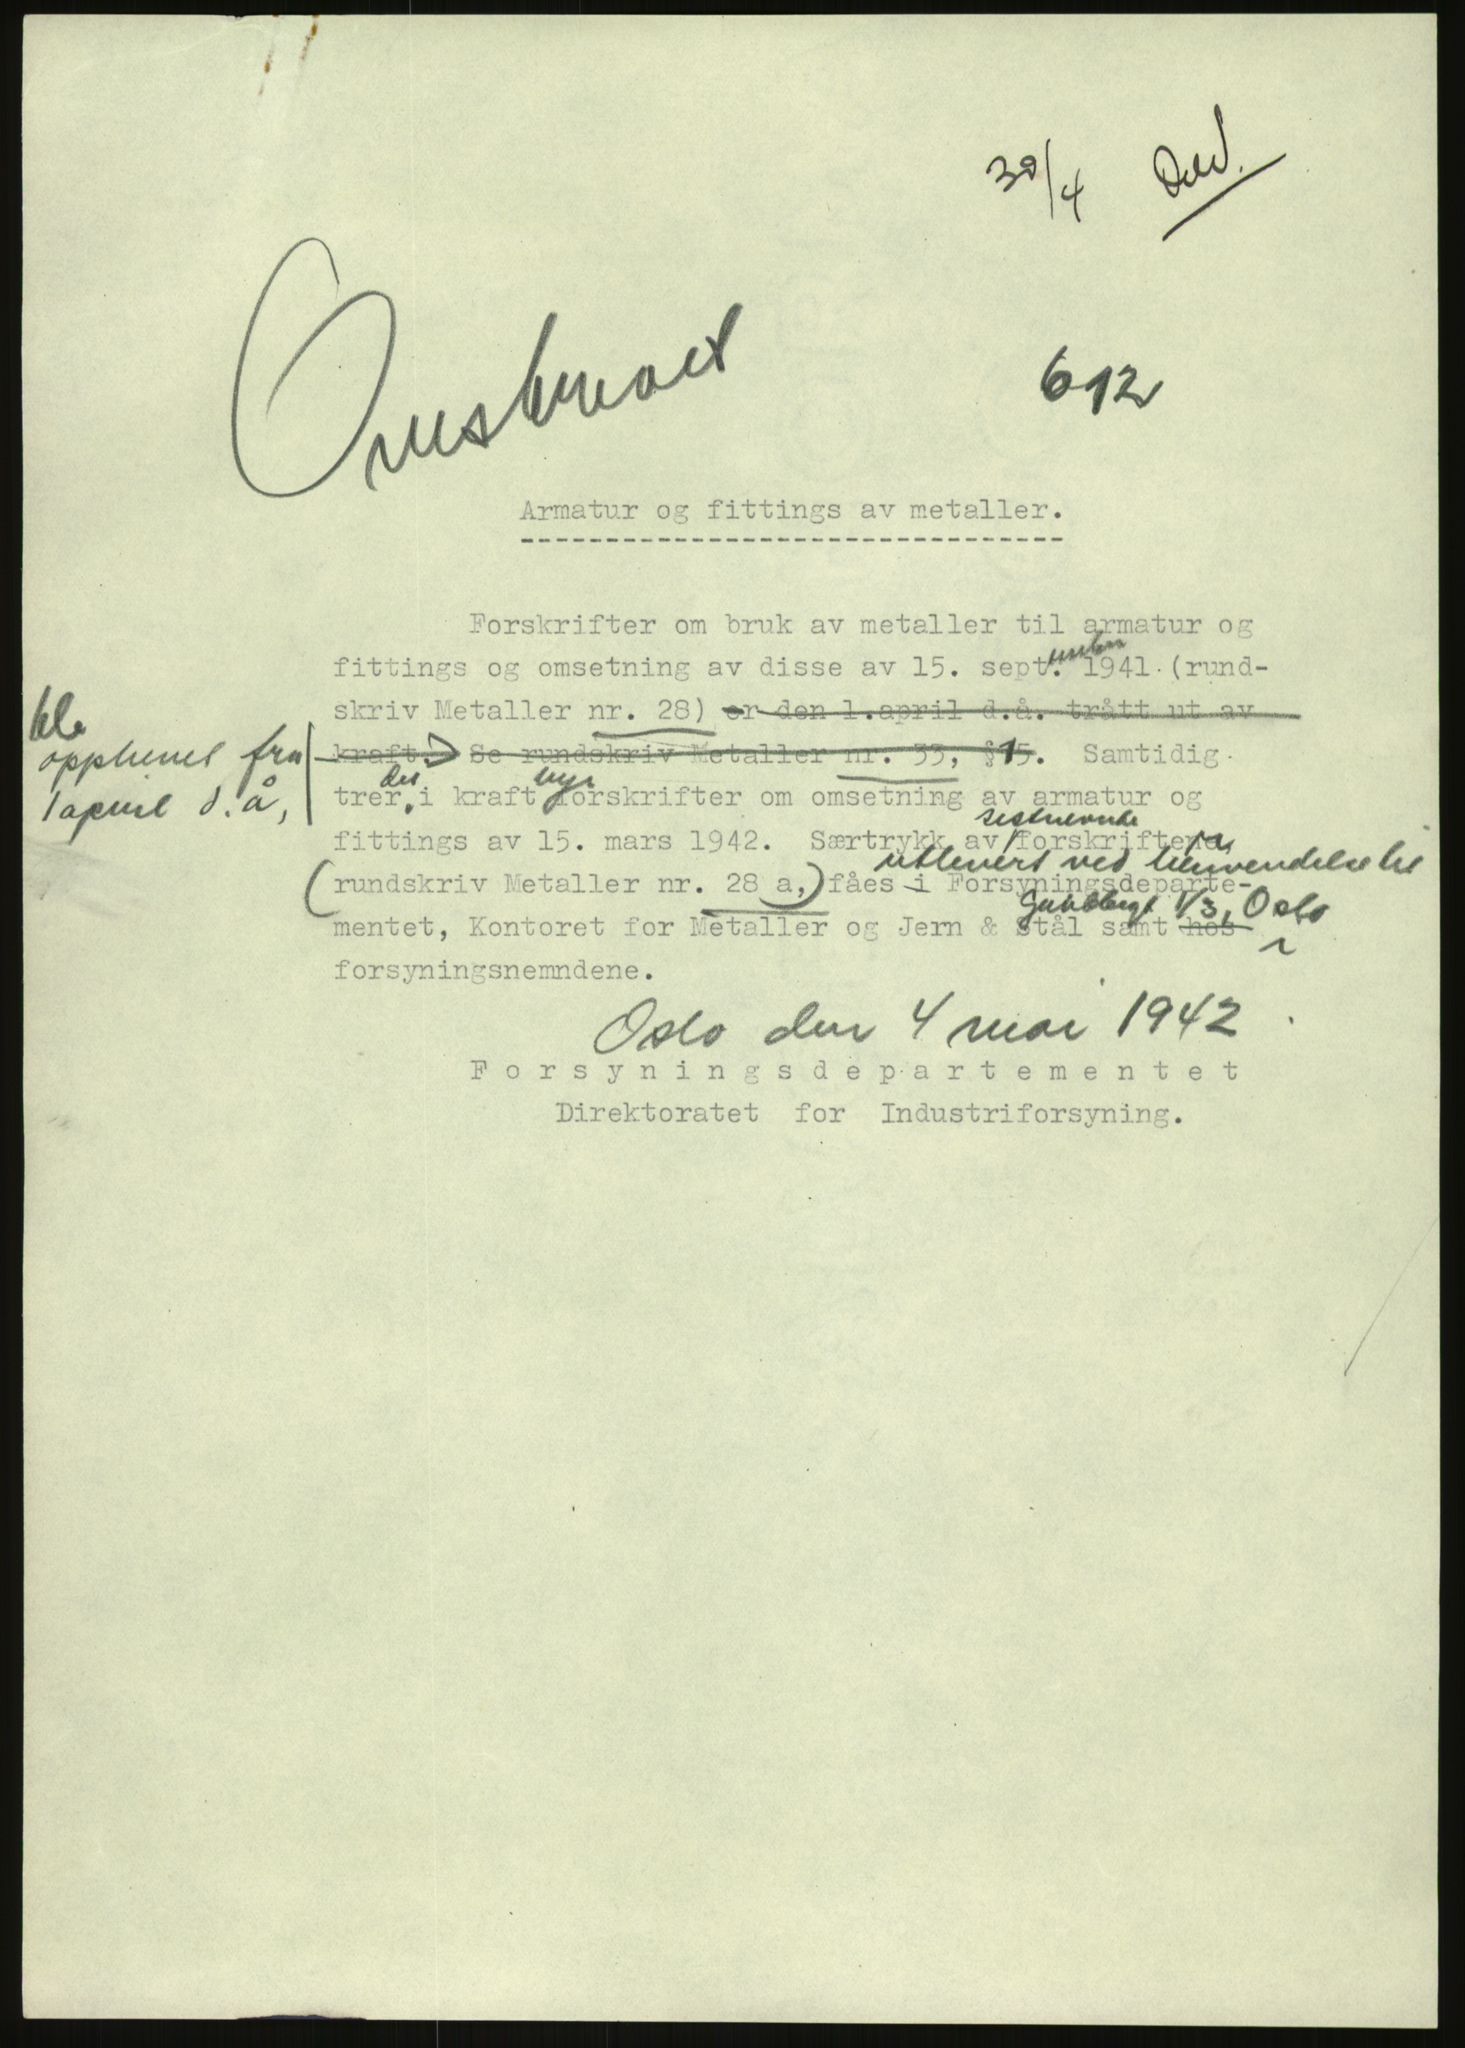 30/4
612
Armatur og fittings av metaller.
Forskrifter om bruk av metaller til armatur og
fittings og omsetning av disse av 15. sept. 1941 (rund-
skriv Metaller nr. 28) er den 1.april d.å. trått ut av
ble
opphevet fra
1 april d.å,
kraft. Se rundskriv Metaller nr. 33, § 15. Samtidig
det nye
trer i kraft forskrifter om omsetning av armatur og
sistnevnte
fittings av 15. mars 1942. Særtrykk av forskriftene,
utlevert ved henvendelse til
(rundskriv Metaller nr. 28 a,) fåes i Forsyningsdeparte-
1/3, Oslo
mentet, Kontoret for Metaller og Jern & Stål samt hos
forsyningsnemndene.
Oslo den 4 mai 1942
Forsyningsdepartementet
Direktoratet for Industriforsyning.